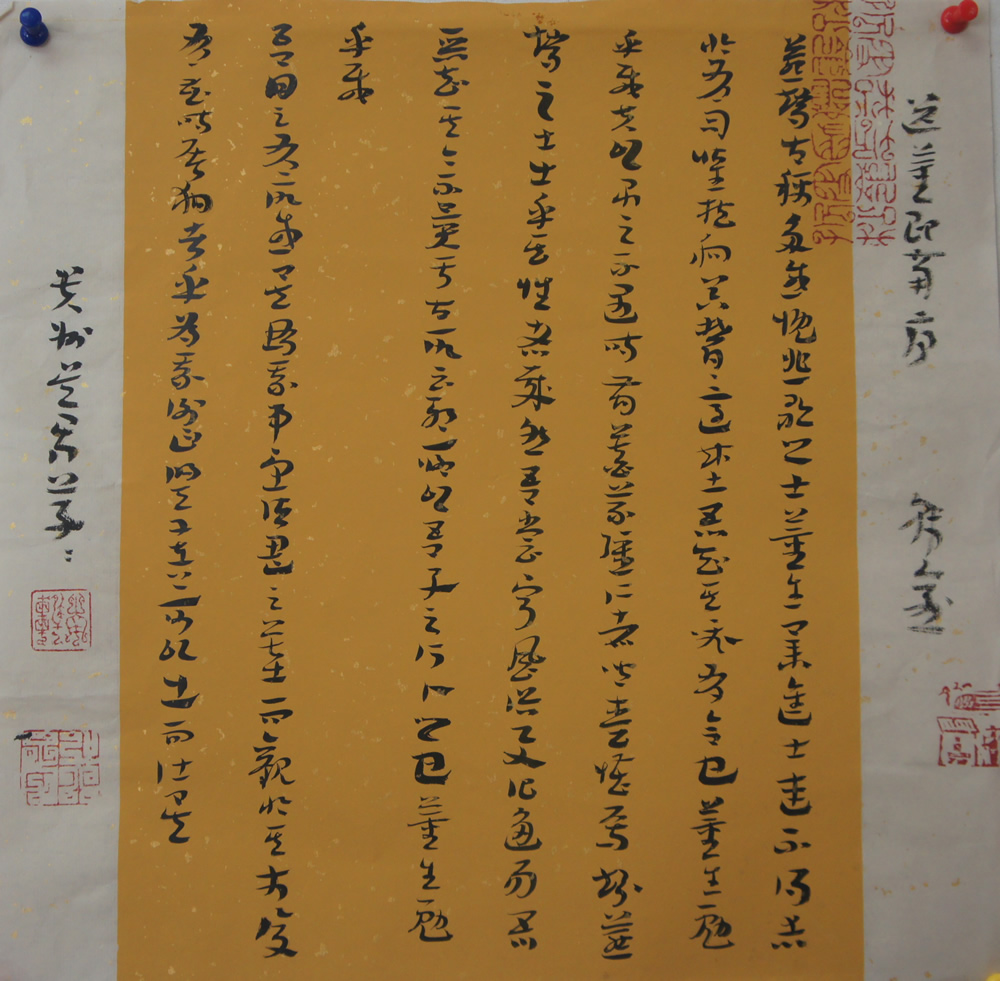 送董邵南序 韓愈
燕趙古稱多感慨悲歌之士董生舉進士連不得志
於有司懷抱利器鬱鬱適茲土吾知其必有合也董生勉
乎哉夫以子之不遇時苟慕義彊仁者皆愛惜焉矧燕
趙之士出乎其性者哉然吾嘗聞風俗與化移易吾惡
知其今不異于古所云邪聊以吾子之行卜之也董生勉
乎哉
吾因之有所感矣為我弔望諸君之墓而觀於其市復
有昔時屠狗者乎為我謝曰明天子在上可以出而仕矣
黃州